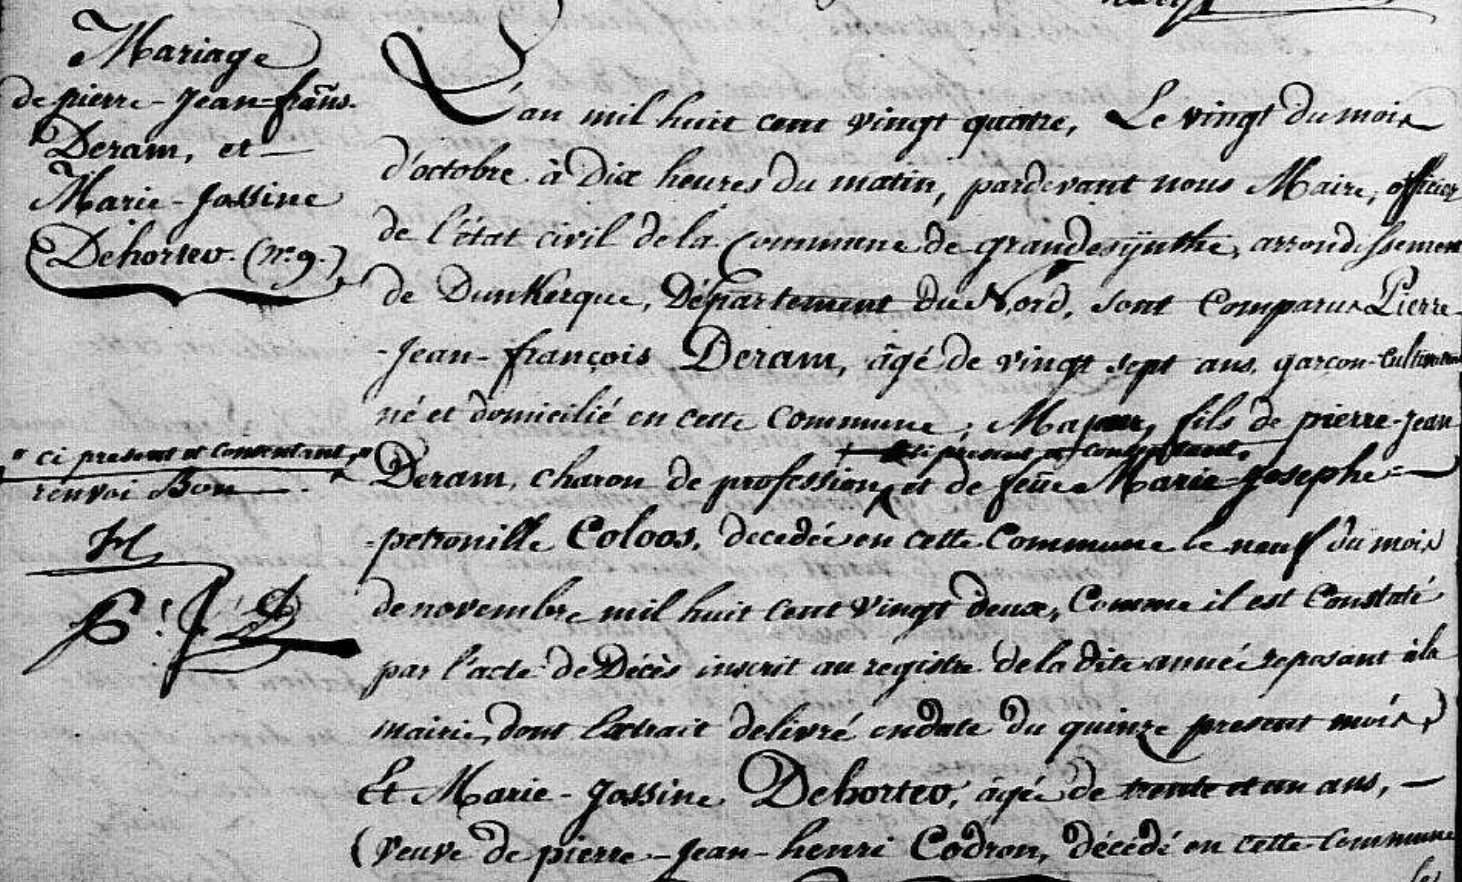 Mariage
de pierre-Jean-frans.
Deram, et
Marie-Jossine
Dehorter. (nº 9.)
"ci present et consentant,"
renvoi Bon
L'an mil huit cent vingt quatre, Le vingt du mois
d'octobre à dix heures du matin, pardevant nous Maire, officier
de l'état civil de la Commune de grandesÿnthe, arrondissement
de Dunkerque, Département du Nord, sont Comparus Pierre-
-Jean-françois Deram, âgé de vingt sept ans, garçon-cultivateur
né et domicilié en cette Commune, Majeur, fils de pierre-Jean
ci present et consentant,
Deram, charon de profession, et de feüe Marie-Josephe=
-petronille Coloos, decedée en cette Commune le neuf du mois
de novembre mil huit cent vingt deux, Comme il est Constaté
par l'acte de Décès inscrit au registre de la dite année reposant à la
mairie, dont l'extrait delivré en date du quinze present mois,
Et Marie-Jossine Dehorter, âgée de trente et un ans,
(veuve de pierre-Jean-henri Codron, décédé en cette Commune